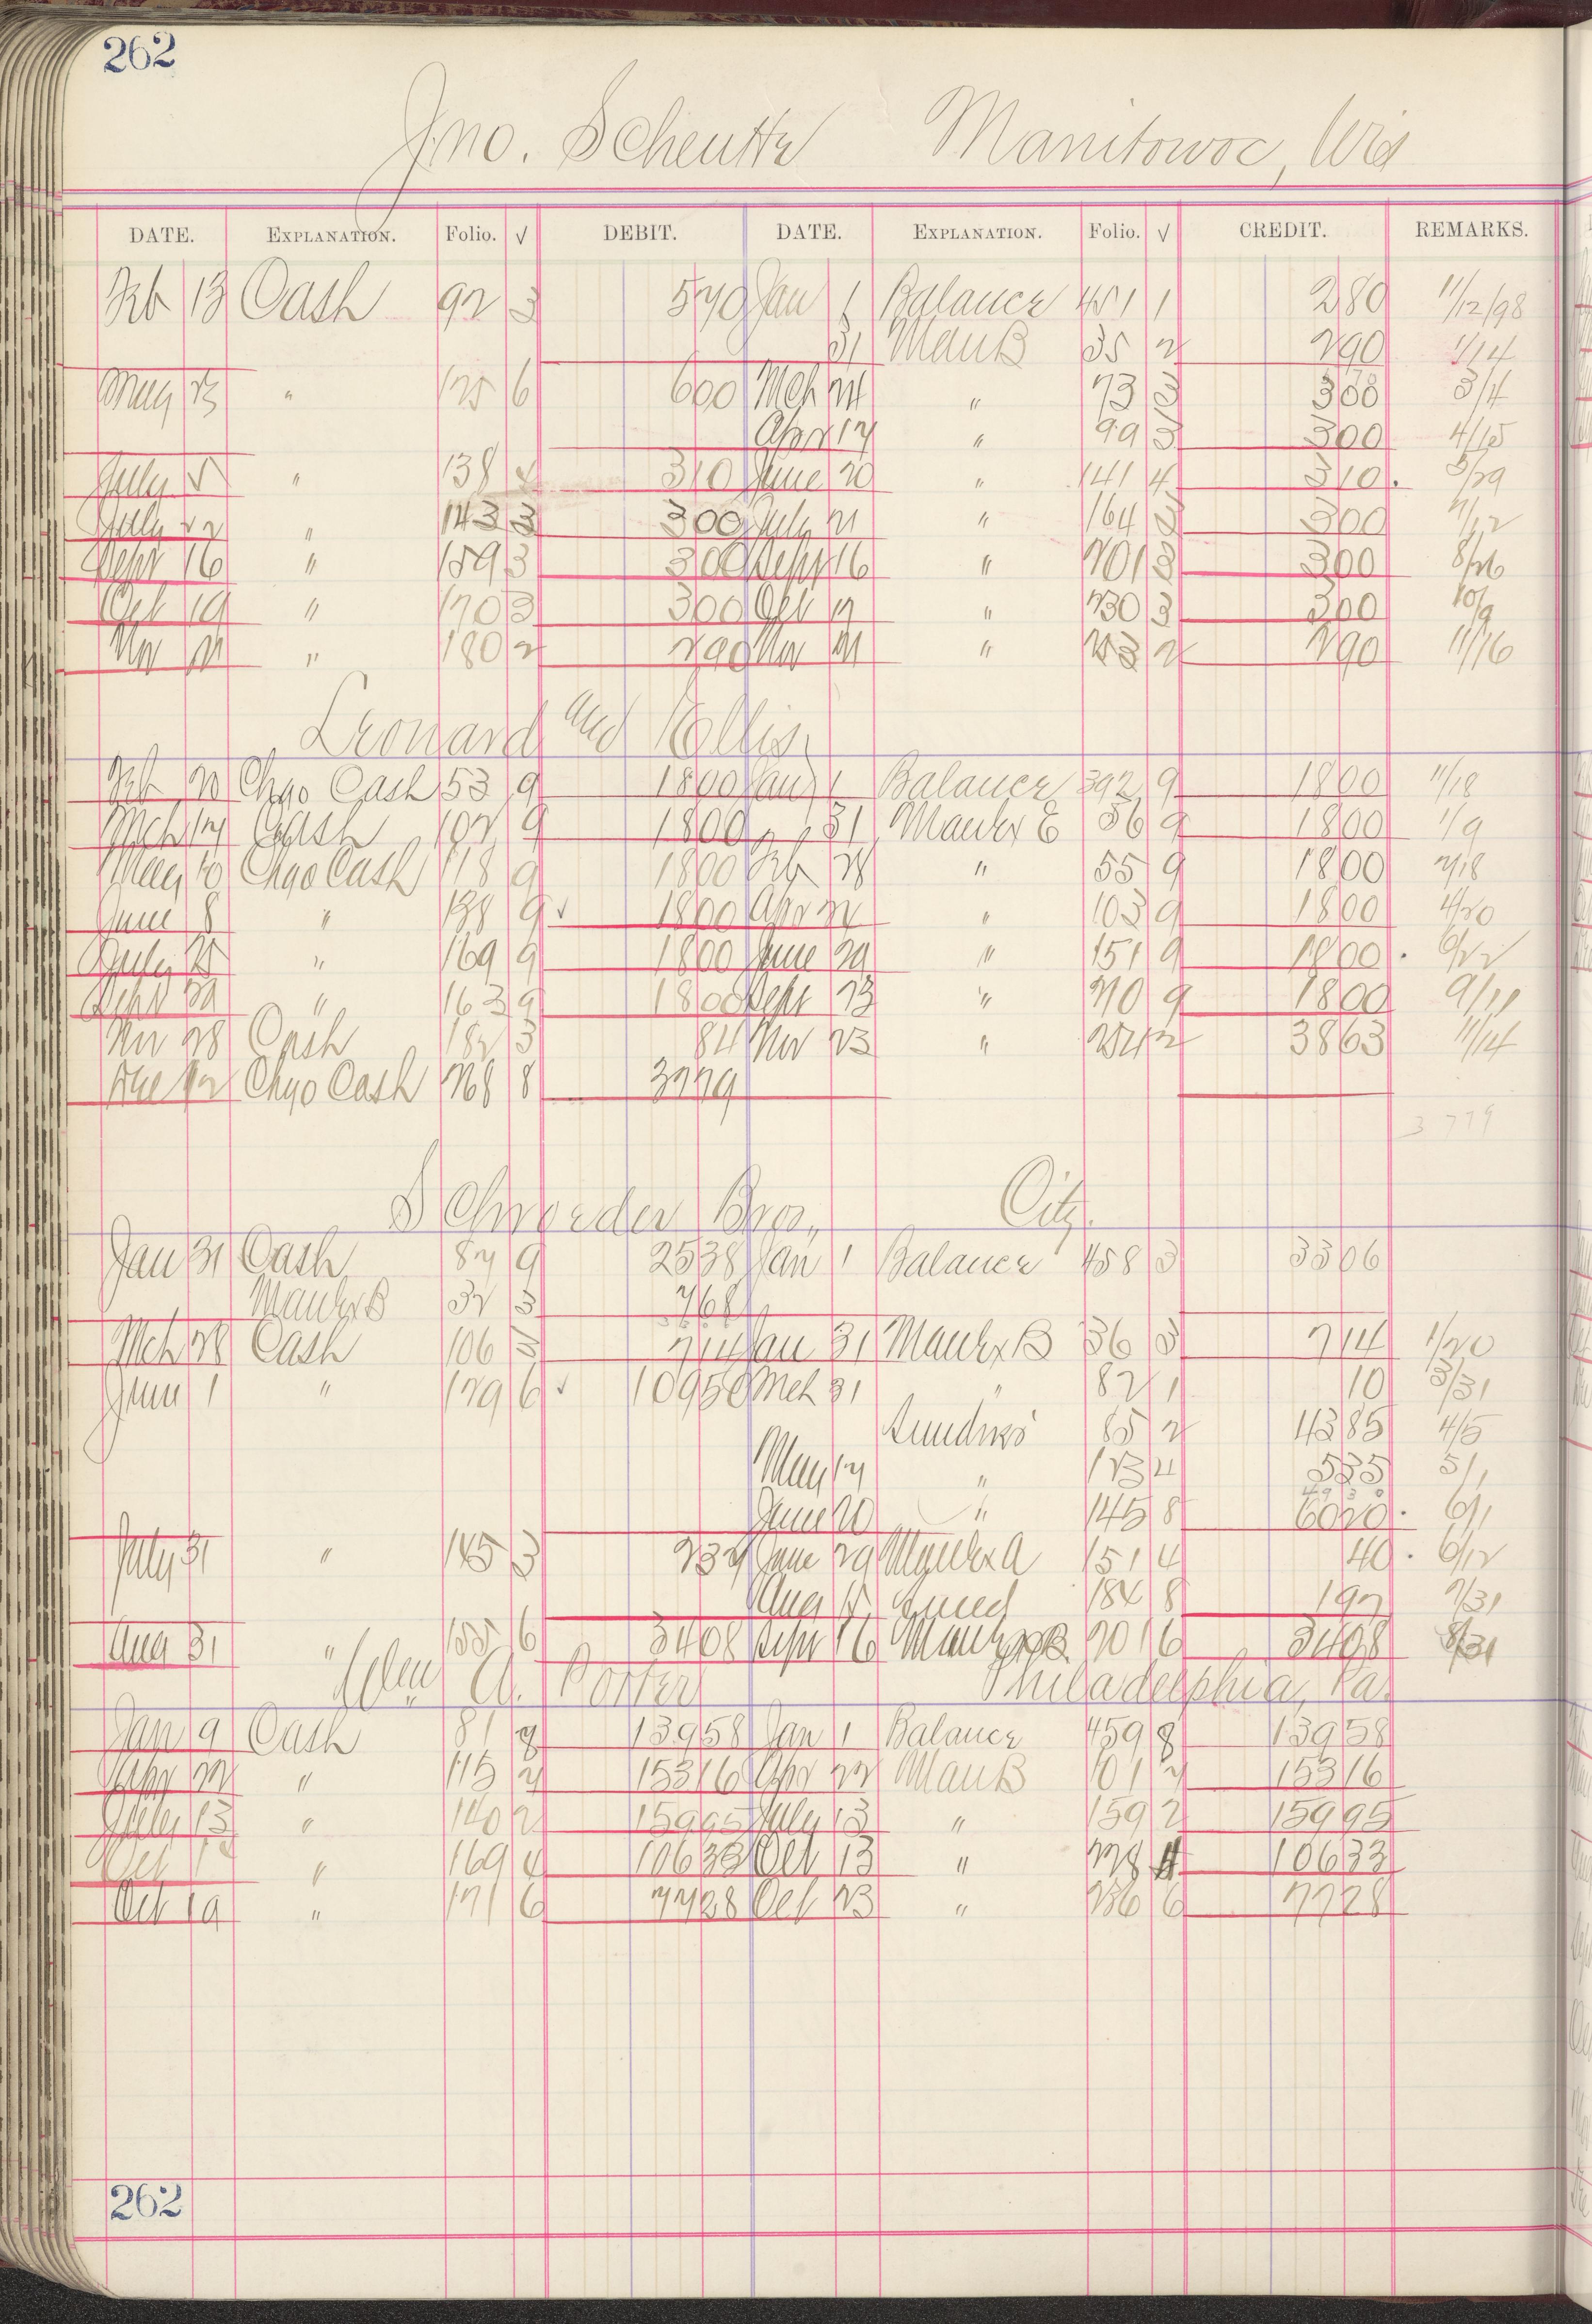 262
Jno. Scheutte Manitowoc, Wis
DATE. EXPLANATION. Folio. √ DEBIT. DATE. EXPLANATION. Folio. √ CREDIT. REMARKS.
Feb 13 Cash 92 3 570 Jan 1 Balance 451 1 280 11/12/98
31 Man B 35 2 290 1/14
May 25 " 125 6 600 Mch 24 " 73 3 300 3/4
Apr 17 " 99 3 300 4/15
July 5 " 138 310 June 20 " 141 4 310. 5/29
July 22 " 143 3 300 July 21 " 164 300 7/12
Sept 16 " 159 3 300 Sept 16 " 201 3 300 8/26
Oct 19 " 170 3 300 Oct 17 " 230 3 300 10/9
Nov 21 " 180 2 290 Nov 21 " 2 290 11/16
Leonard and Ellis,
Feb 20 Chgo Cash 53 9 1800 Jan 1 Balance 392 9 1800 11/18
Mch 17 Cash 102 9 1800 " 31 Manfr E 36 9 1800 1/9
May 10 Chgo Cash 118 9 1800 Feb 28 " 55 9 1800 2/18
June 8 " 138 9 √ 1800 Apr 24 " 103 9 1800 4/20
July " 169 9 1800 June 29 " 151 9 1800. 6/22
Sept 30 " 163 9 1800 Sept 23 " 210 9 1800 9/11
Nov 28 Cash 182 3 84 Nov 23 " 2 3863 11/14
Dec 12 Chgo Cash 268 8 3779
3779
Schroeder Bros, City.
Jan 31 Cash 87 9 2538 Jan 1 Balance 458 3 3306
Manfr B 32 3 768
Mch 28 Cash 106 3 714 Jan 31 Manfr B 36 3 714 1/20
June 1 " 129 6 √ 10950 Mch 31 " 82 1 10 3/31
Sundries 85 2 4385 4/5
May 17 " 123 4 535 5/1
June 20 " 145 8 6020. 6/1
July 31 " 145 3 232 June 29 Manfr A 151 4 40. 6/12
Aug Sund 184 8 192 7/31
Aug 31 " 155 6 3408 Sept 16 Manfr B 201 6 3408 8/31
A. Porter Philadelphia, Pa.
Jan 9 Cash 81 8 13958 Jan 1 Balance 459 8 13958
Apr 22 " 115 2 15316 Apr 22 Man B 101 2 15316
July 13 " 140 2 15995 July 13 " 159 2 15995
Oct " 169 4 10633 Oct 13 " 228 4 10633
Oct 19 " 171 6 7728 Oct 23 " 236 6 7728
262